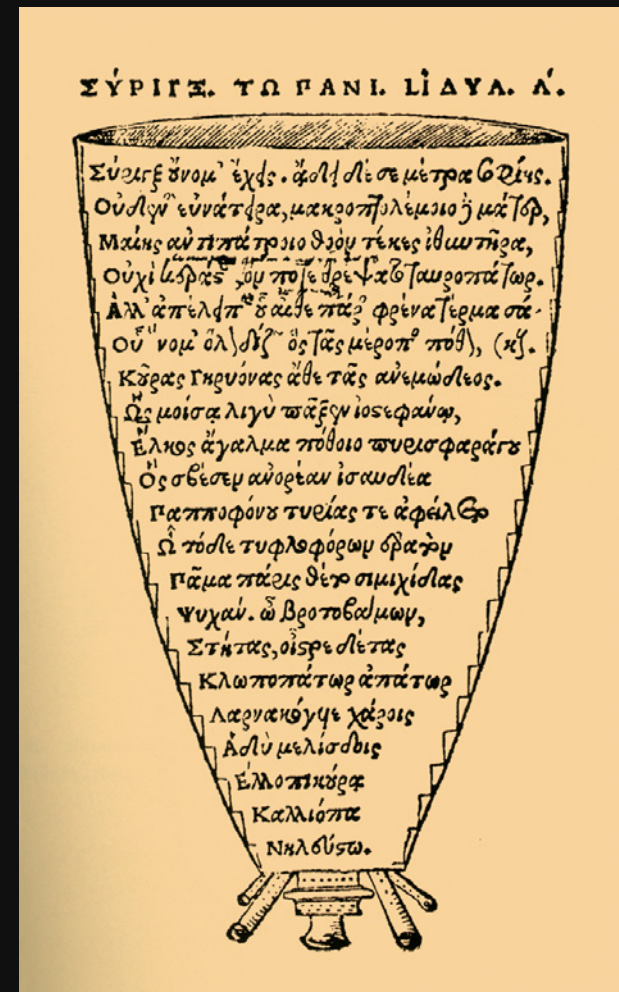 ΣΎΡΙΓΞ. ΤΩ ΠΑΝΙ. ΕἸΔΥΛ. Λ'.
Σύριγξ οὔνομ' ἔχεις. ᾄδει δέ σε μέτρα σοφίης.
Οὐδενὸς εὐνάτειρα, μακροπτολέμοιο δὲ μάτηρ,
Μαίης ἀντιπάτροιο θοὸν τέκες ἰθυντῆρα,
Οὐχὶ κεράσταν, ὅν ποτε θρέψατο ταυροπάτωρ.
Ἀλλ' ἀπελειπ αἶθε πάρος φρένα τέρμα σά-
Οὔνομ' ὅλον δίζων ὃς τᾶς μέροπος πόθον, (κος.
Κούρας Γηρυόνας ἄθε τᾶς ἀνεμώδεος.
Ὃς μοίσᾳ λιγὺ πᾶξεν ἰοστεφάνῳ,
Ἕλκος ἄγαλμα πόθοιο πυρισφαράγου
Ὃς σβέσεν ἀνορέαν ἰσαυδέα
Παπποφόνου τυρίας τε ἀφείλετο
Ὧ τόδε τυφλοφόρων ἐρατὸν
Πᾶμα πάρις θέτο σιμιχίδας
Ψυχάν. ὦ βροτοβάμων,
Στήτας, οἶστρε δέτας
Κλωποπάτωρ ἀπάτωρ
Λαρνακόγυιε χάροις
Ἁδὺ μελίσδοις
Ἔλλοπι κούρᾳ
Καλλιόπᾳ
Νηλεύστῳ.